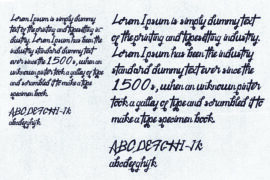 Lorem Ipsum is simply dummy
text of the printing and typesetting in-
dustry. Lorem Ipsum has been the
industry standard dummy text
ever since the 1500s, when an
unknown printer took a galley of type
and scrambled it to make a type
specimen book.
ABCDEFGHIJK
abcdefghijk
Lorem Ipsum is simply dummy text
of the printing and typesetting industry.
Lorem Ipsum has been the industry
standard dummy text ever since the
1500s, when an unknown printer
took a galley of type and scrambled it to
make a type specimen book.
ABCDEFGHIJK
abcdefghijk